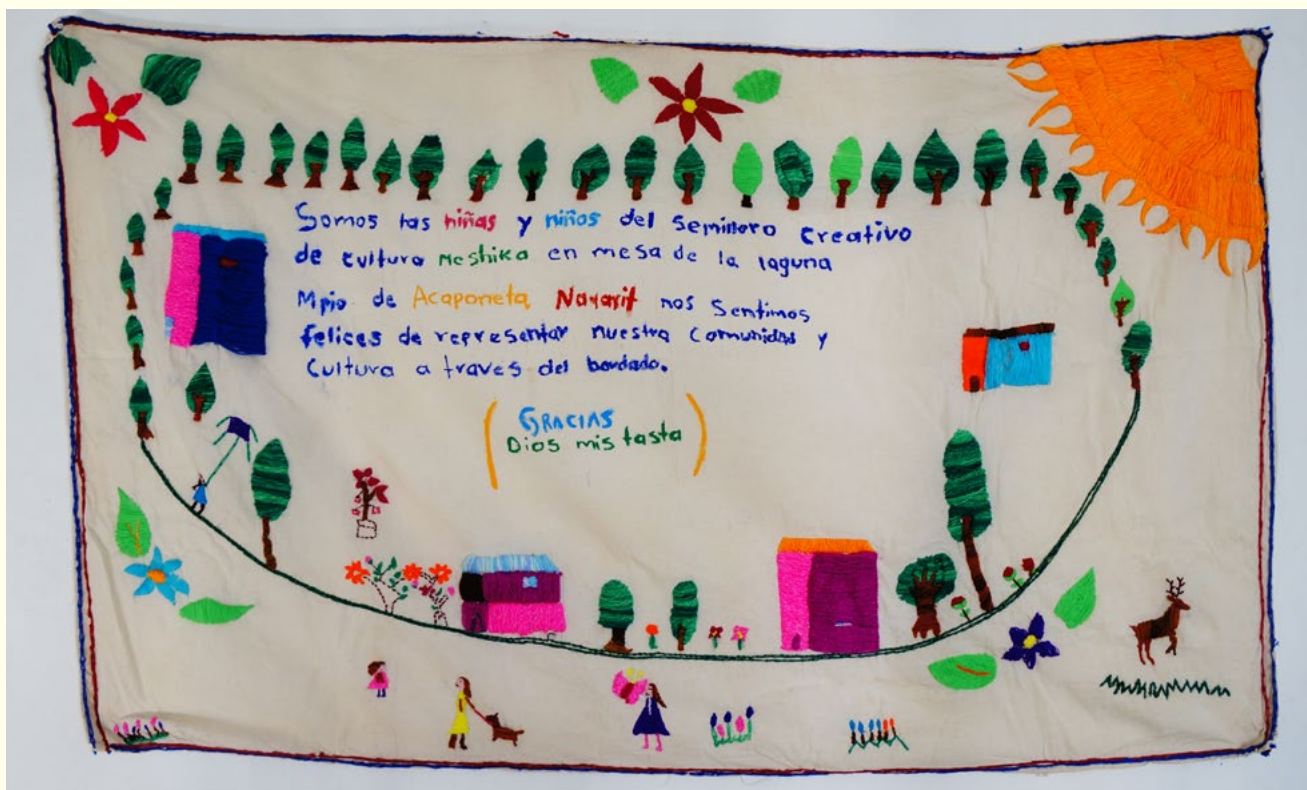 Somos las niñas y niños del semillero creativo
de cultura meshika en mesa de la laguna
Mpio de Acaponeta Nayarit nos Sentimos
felices de representar nuestra Comunidad y
Cultura a traves del bordado.
GRACIAS
Dios mis tasta